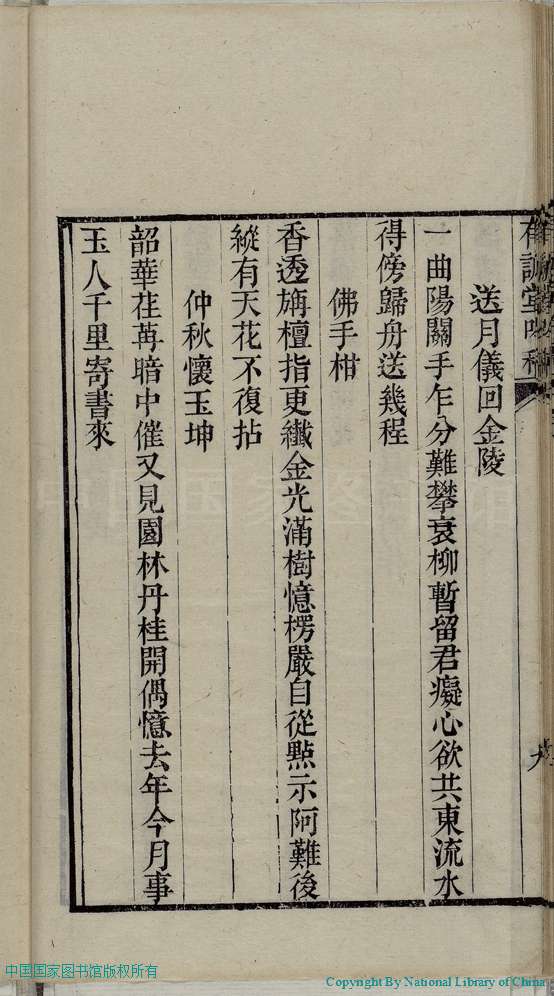 送月儀回金陵
一曲陽關手乍分難攀衰柳暫留君癡心欲共東流水
得傍歸舟送幾程
佛手柑
香透旃檀指更纖金光滿樹憶楞嚴自從點示阿難後
縱有天花不復拈
仲秋懷玉坤
韶華荏苒暗中催又見園林丹桂開偶憶去年今月事
玉人千里寄書來
中国国家图书馆版权所有
Copyright By National Library of China